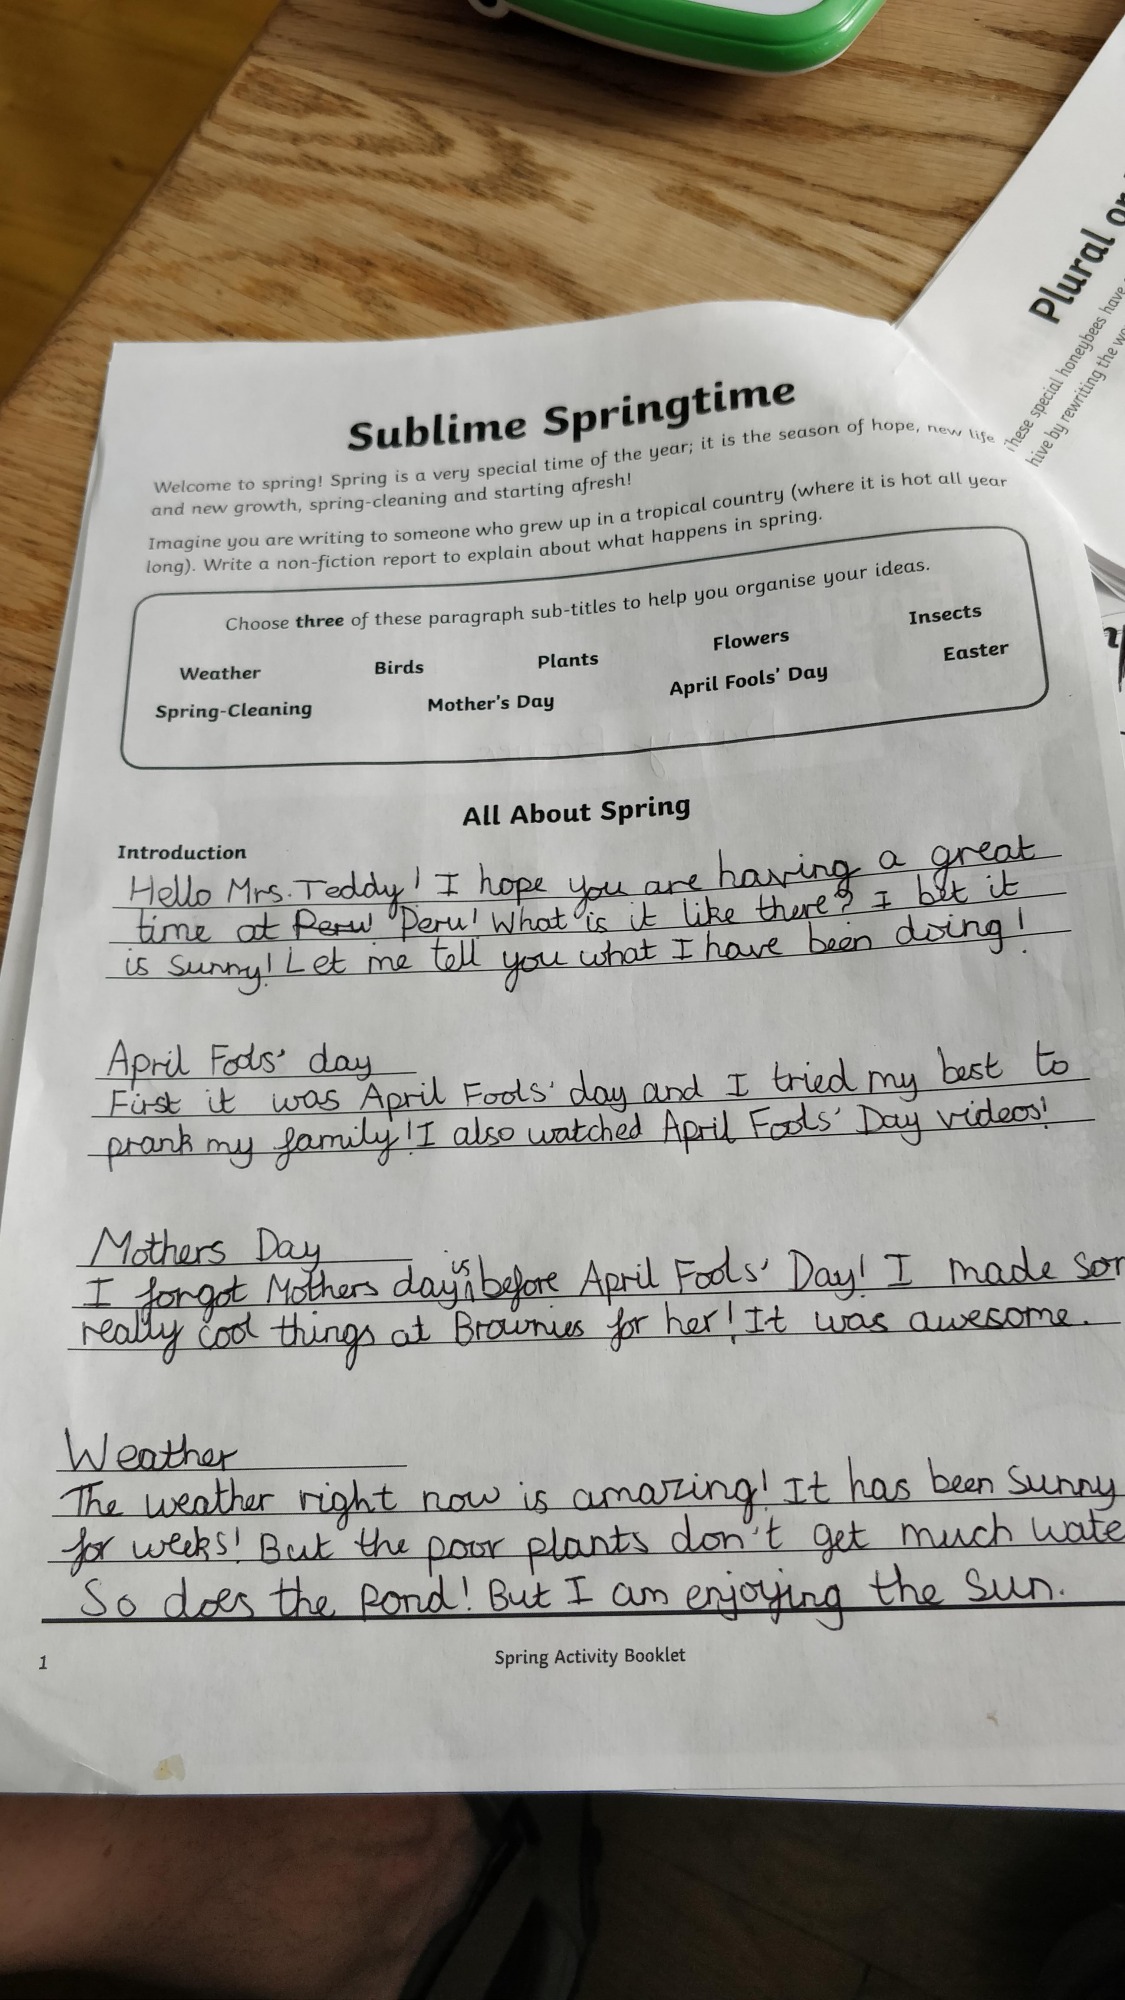 Sublime Springtime
Welcome to spring! Spring is a very special time of the year; it is the season of hope, new life
and new growth, spring-cleaning and starting afresh!
Imagine you are writing to someone who grew up in a tropical country (where it is hot all year
long). Write a non-fiction report to explain about what happens in spring.
Choose three of these paragraph sub-titles to help you organise your ideas.
Weather Birds Plants Flowers Insects
Spring-Cleaning Mother's Day April Fools' Day Easter
All About Spring
Introduction
Hello Mrs. Teddy! I hope you are having a great
time at Peru Peru! What is it like there? I bet it
is sunny! Let me tell you what I have been doing!
April Fools' day
First it was April Fools' day and I tried my best to
prank my family! I also watched April Fools' Day videos!
Mothers Day
I forgot Mothers day is before April Fools' Day! I made
really cool things at Brownies for her! It was awesome.
Weather
The weather right now is amazing! It has been sunny
for weeks! But the poor plants don't get much
So does the pond! But I am enjoying the sun.
1
Spring Activity Booklet
Plural
these special honeybees have
hive by rewriting the